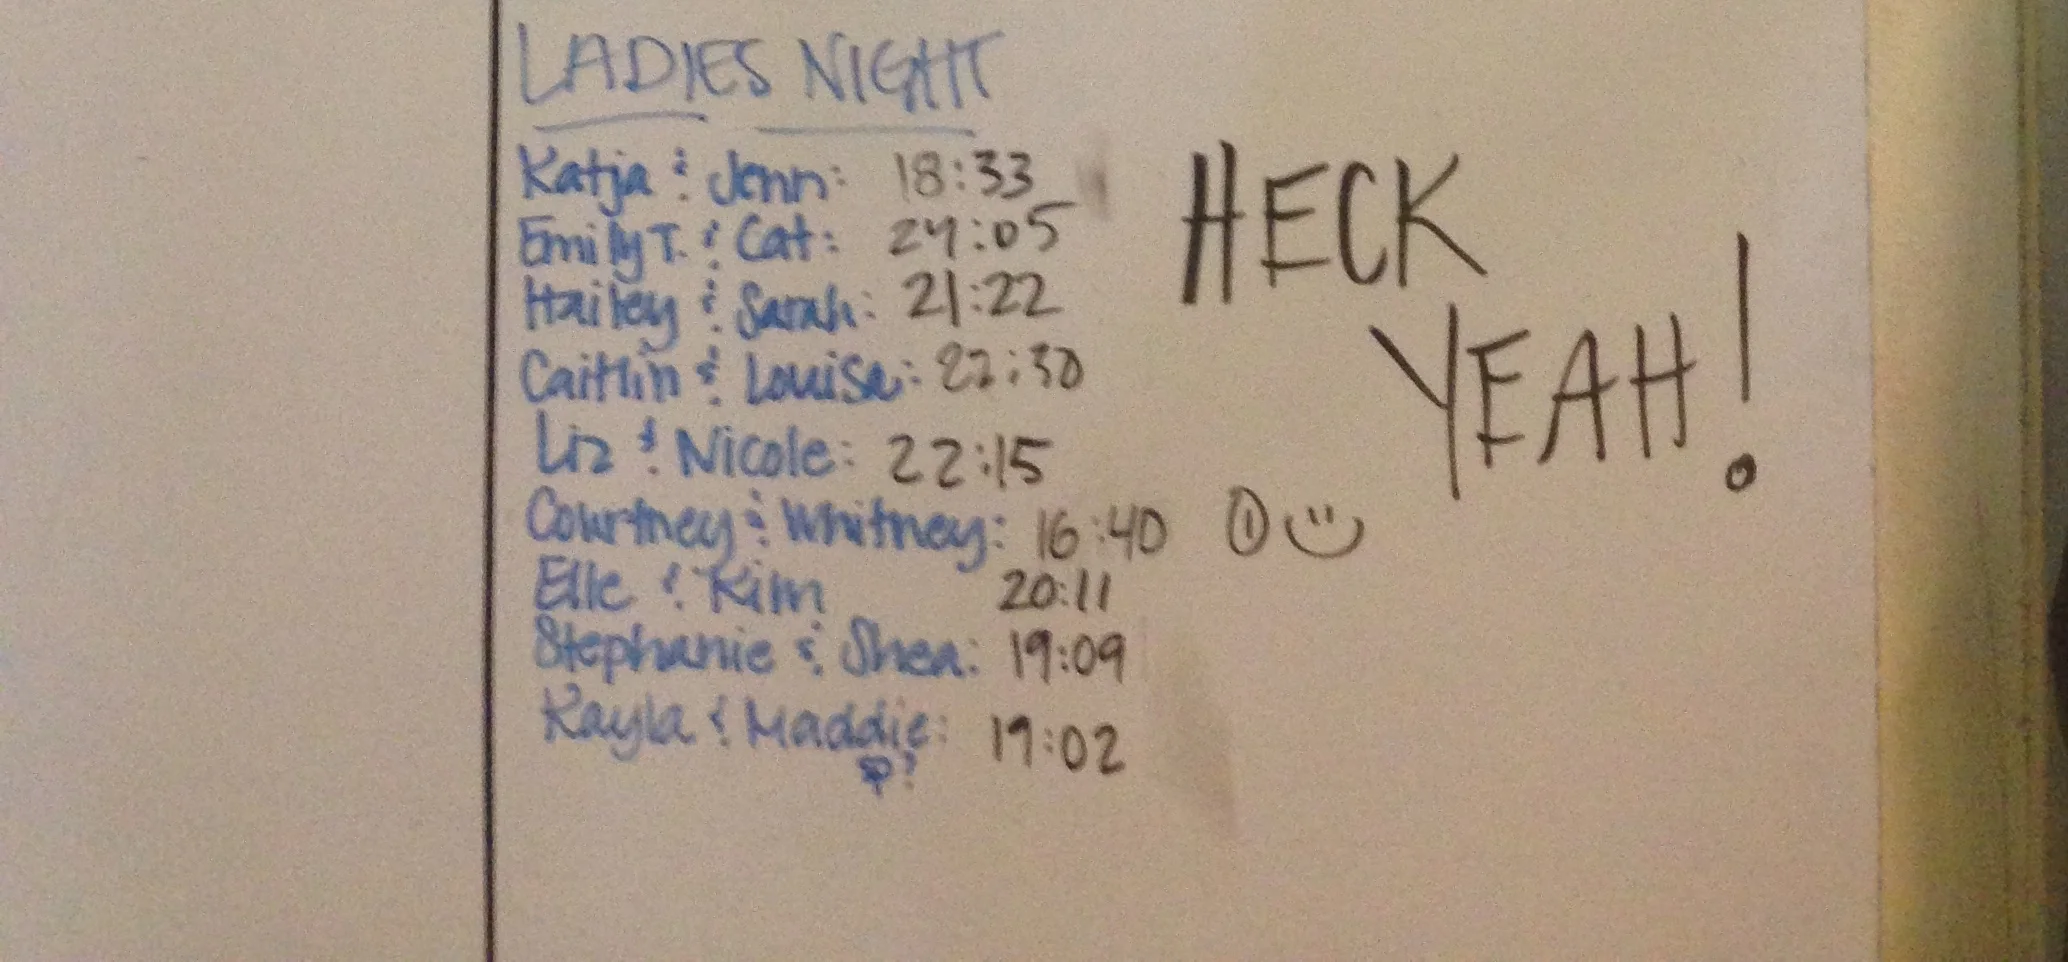 LADIES NIGHT
Katja & Jenn: 18:33
Emily T. & Cat: 24:05
Hailey & Sarah: 21:22
Caitlin & Louise: 22:30
Liz & Nicole: 22:15
Courtney & Whitney: 16:40 ①
Elle & Kim 20:11
Stephanie & Shea: 19:09
Kayla & Maddie: 19:02
HECK
YEAH!